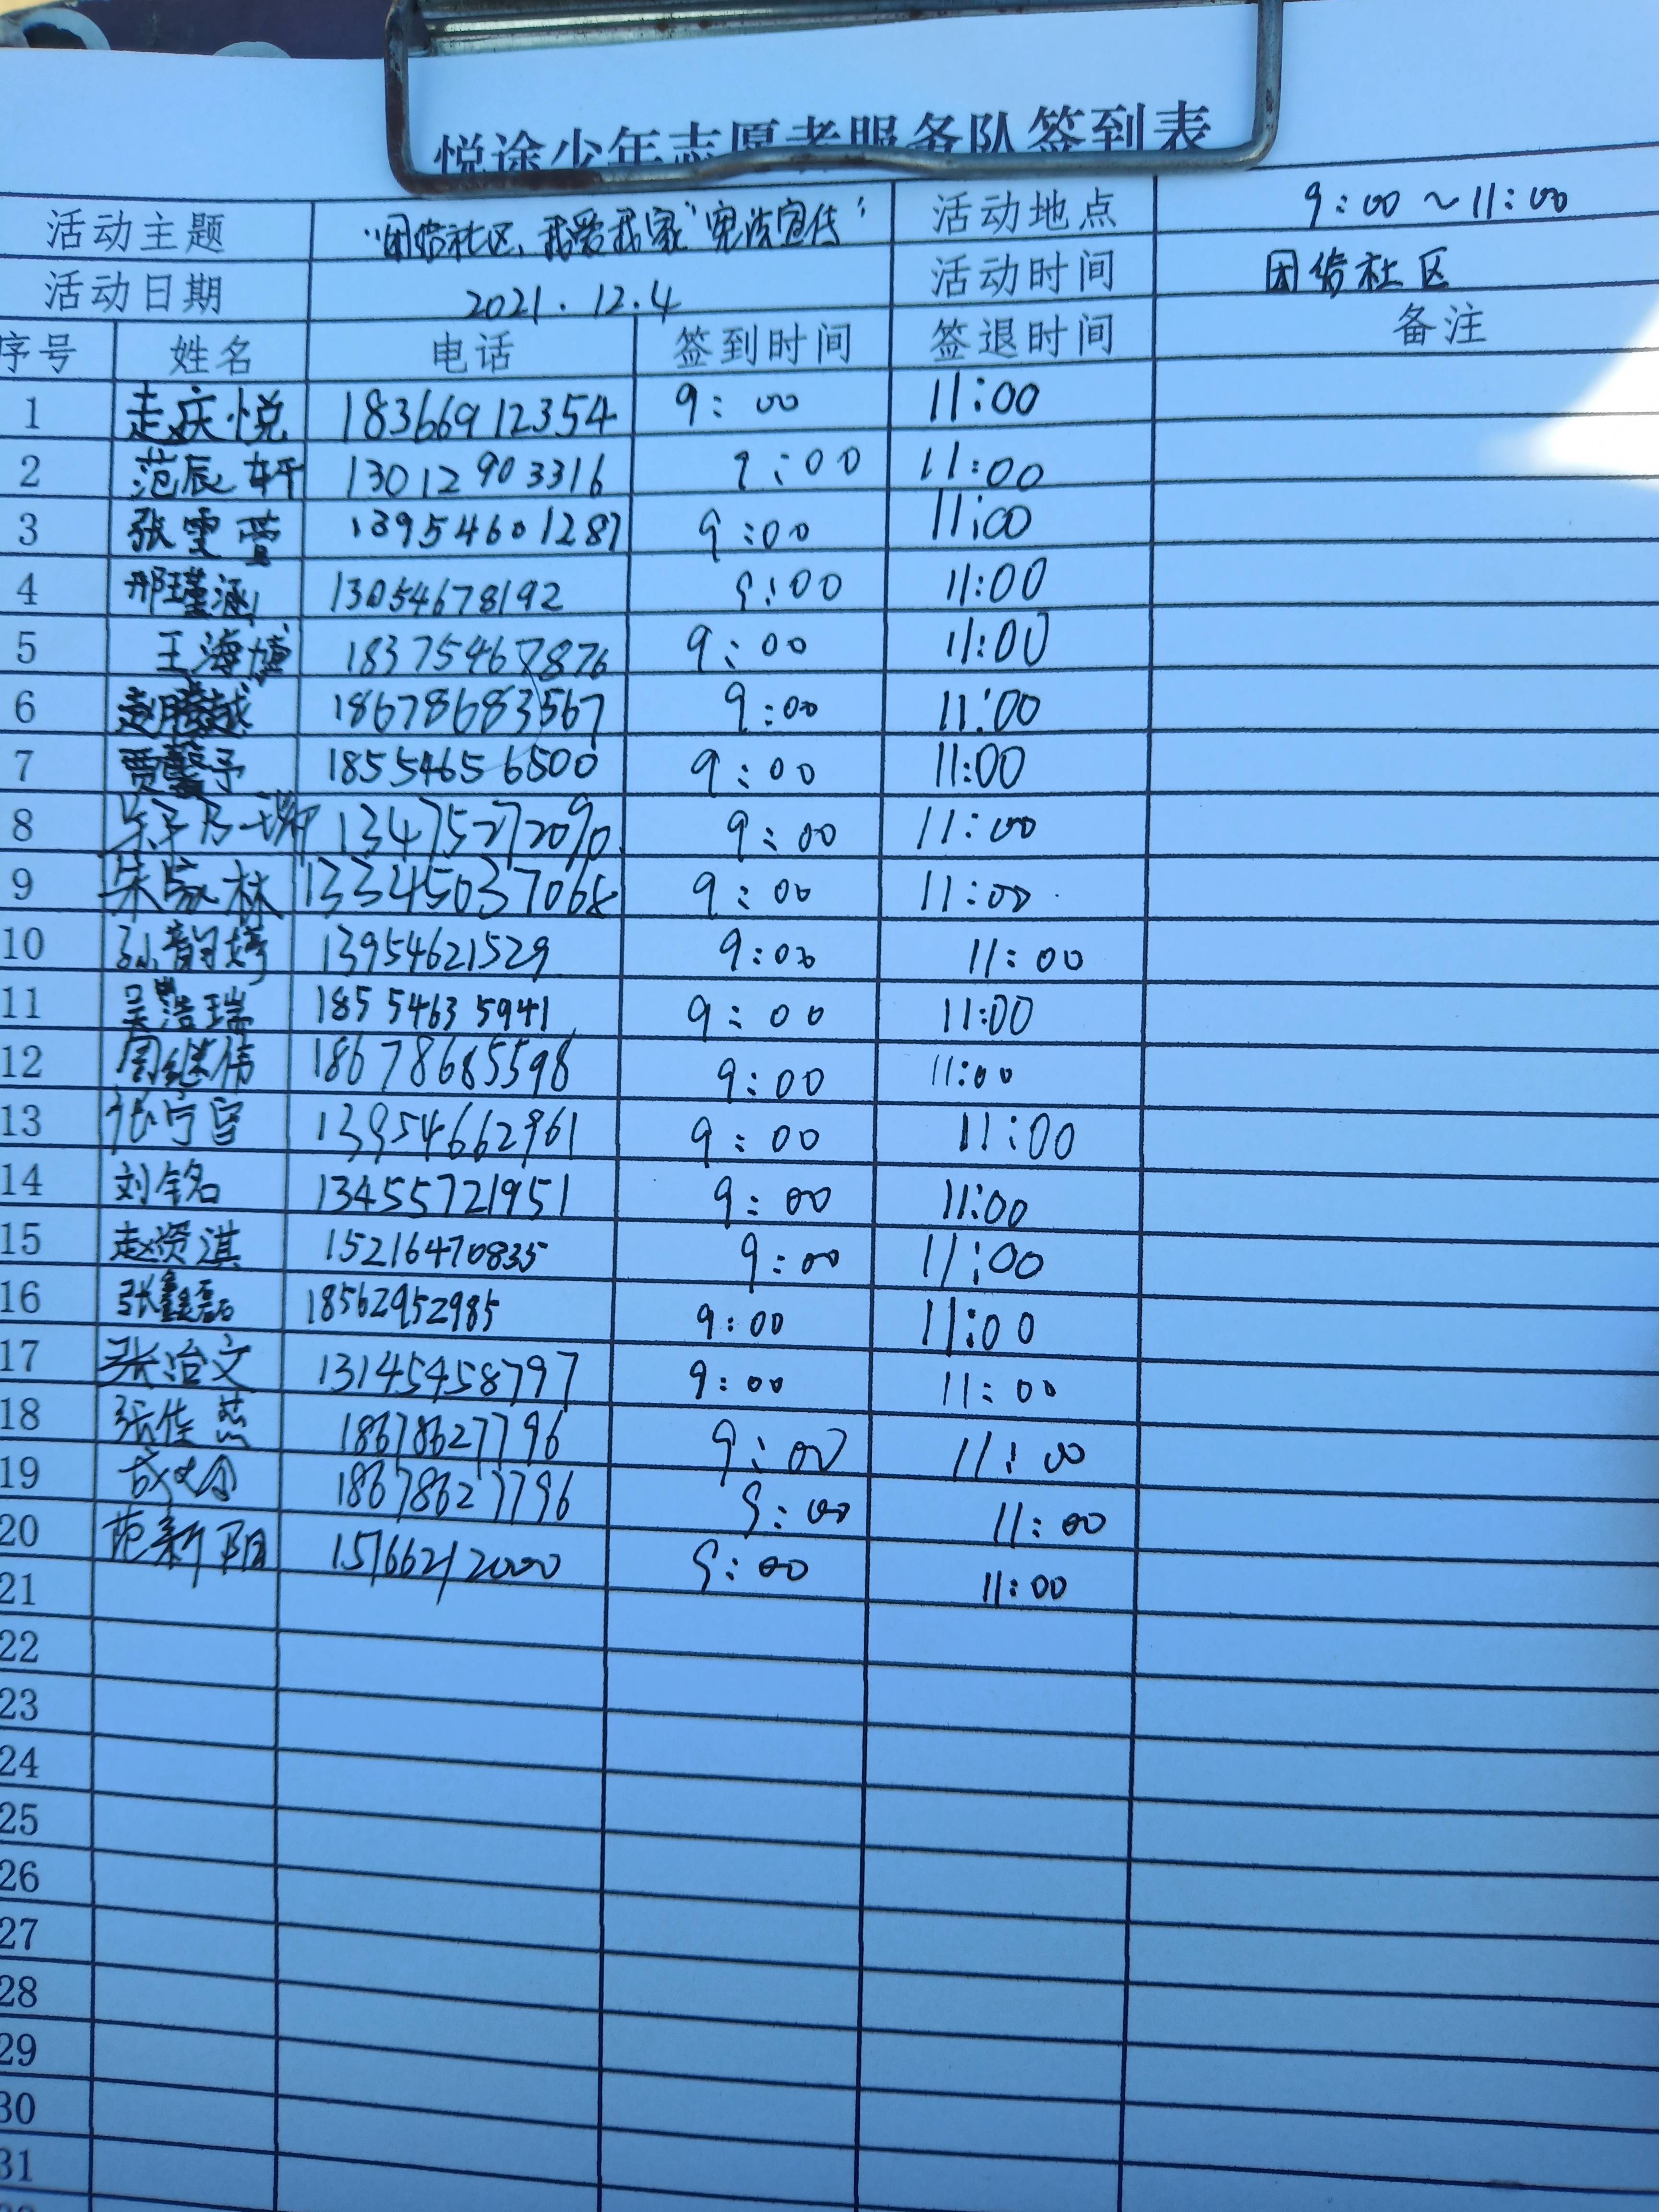 悦途少年志愿者服务队签到表
活动主题 "团结社区，我爱我家"宪法宣传" 活动地点 9:00～11:00
活动日期 2021.12.4 活动时间 团结社区
序号 姓名 电话 签到时间 签退时间 备注
1 走庆悦 18366912354 9:00 11:00
2 范辰轩 13012903316 9:00 11:00
3 张雯萱 13954601287 9:00 11:00
4 邢瑾涵 13054678192 9:00 11:00
5 王海博 18375467876 9:00 11:00
6 赵腾越 18678683567 9:00 11:00
7 贾馨予 18554656500 9:00 11:00
8 13475272090 9:00 11:00
9 朱家林 13345037068 9:00 11:00
10 孙韵婷 13954621529 9:00 11:00
11 吴浩瑞 18554635941 9:00 11:00
12 周继伟 18678685598 9:00 11:00
13 13954662961 9:00 11:00
14 刘铭 13455721951 9:00 11:00
15 赵贤淇 15216470835 9:00 11:00
16 张鑫磊 18562952985 9:00 11:00
17 张治文 13145458797 9:00 11:00
18 张佳 18678627796 9:00 11:00
19 18678627796 9:00 11:00
20 范新阳 15166212000 9:00 11:00
21
22
23
24
25
26
27
28
29
30
31